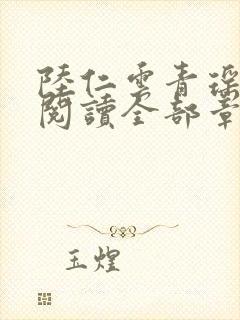 陸仁雲青瑤
閱讀全部章
玉煌